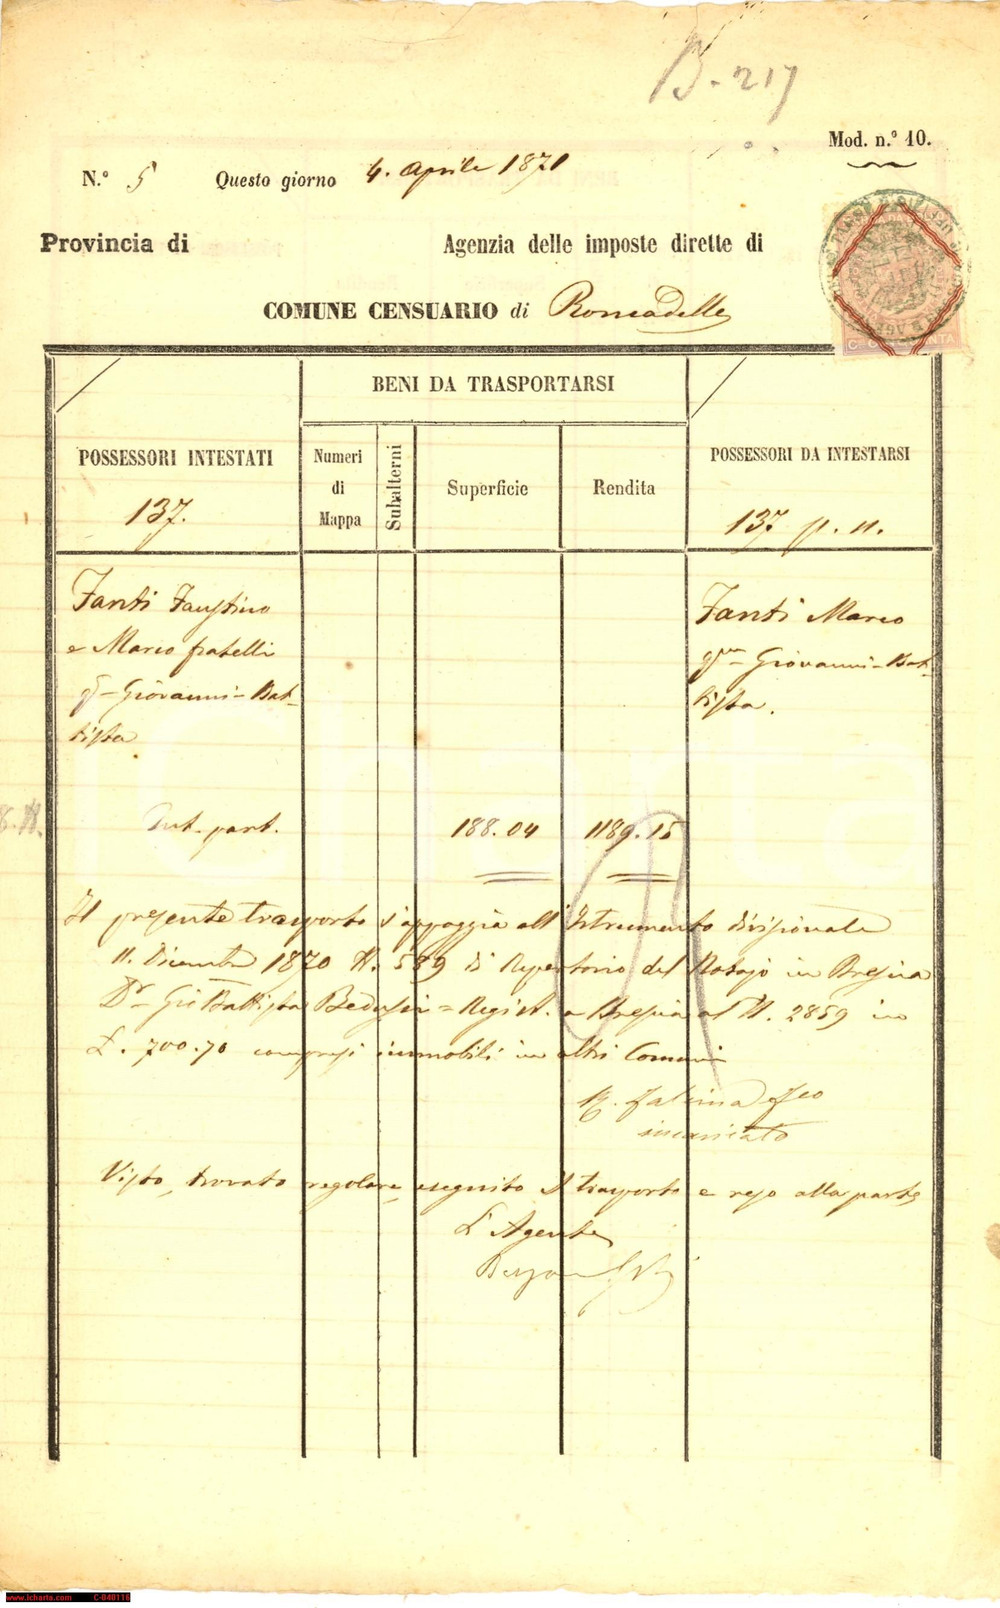 B. 217
Mod. n.º 10.
N.º 5 Questo giorno 4. Aprile 1871
Provincia di Agenzia delle imposte dirette di
COMUNE CENSUARIO di Roncadelle
BENI DA TRASPORTARSI
POSSESSORI INTESTATI
137.
Numeri
di
Mappa
Subalterni
Superficie
Rendita
POSSESSORI DA INTESTARSI
137 p. n.
Fanti Faustino
e Marco fratelli
qm Giovanni-Bat-
tista
Fanti Marco
qm Giovanni-Bat-
tista.
Int. part. 188.04 1189.15
Il presente trasporto s'appoggia all'Istrumento divisionale
11. Dicembre 1870 N. 589 di Repertorio del Notajo in Brescia
Dr. Gio Battista = Regist. a Brescia al N. 2859 in
£. 700.70 compresi immobili in altri Comuni
incaricato
Visto, trovato regolare, eseguito il trasporto e reso alla parte
L'Agente
www.icharta.com C-040116